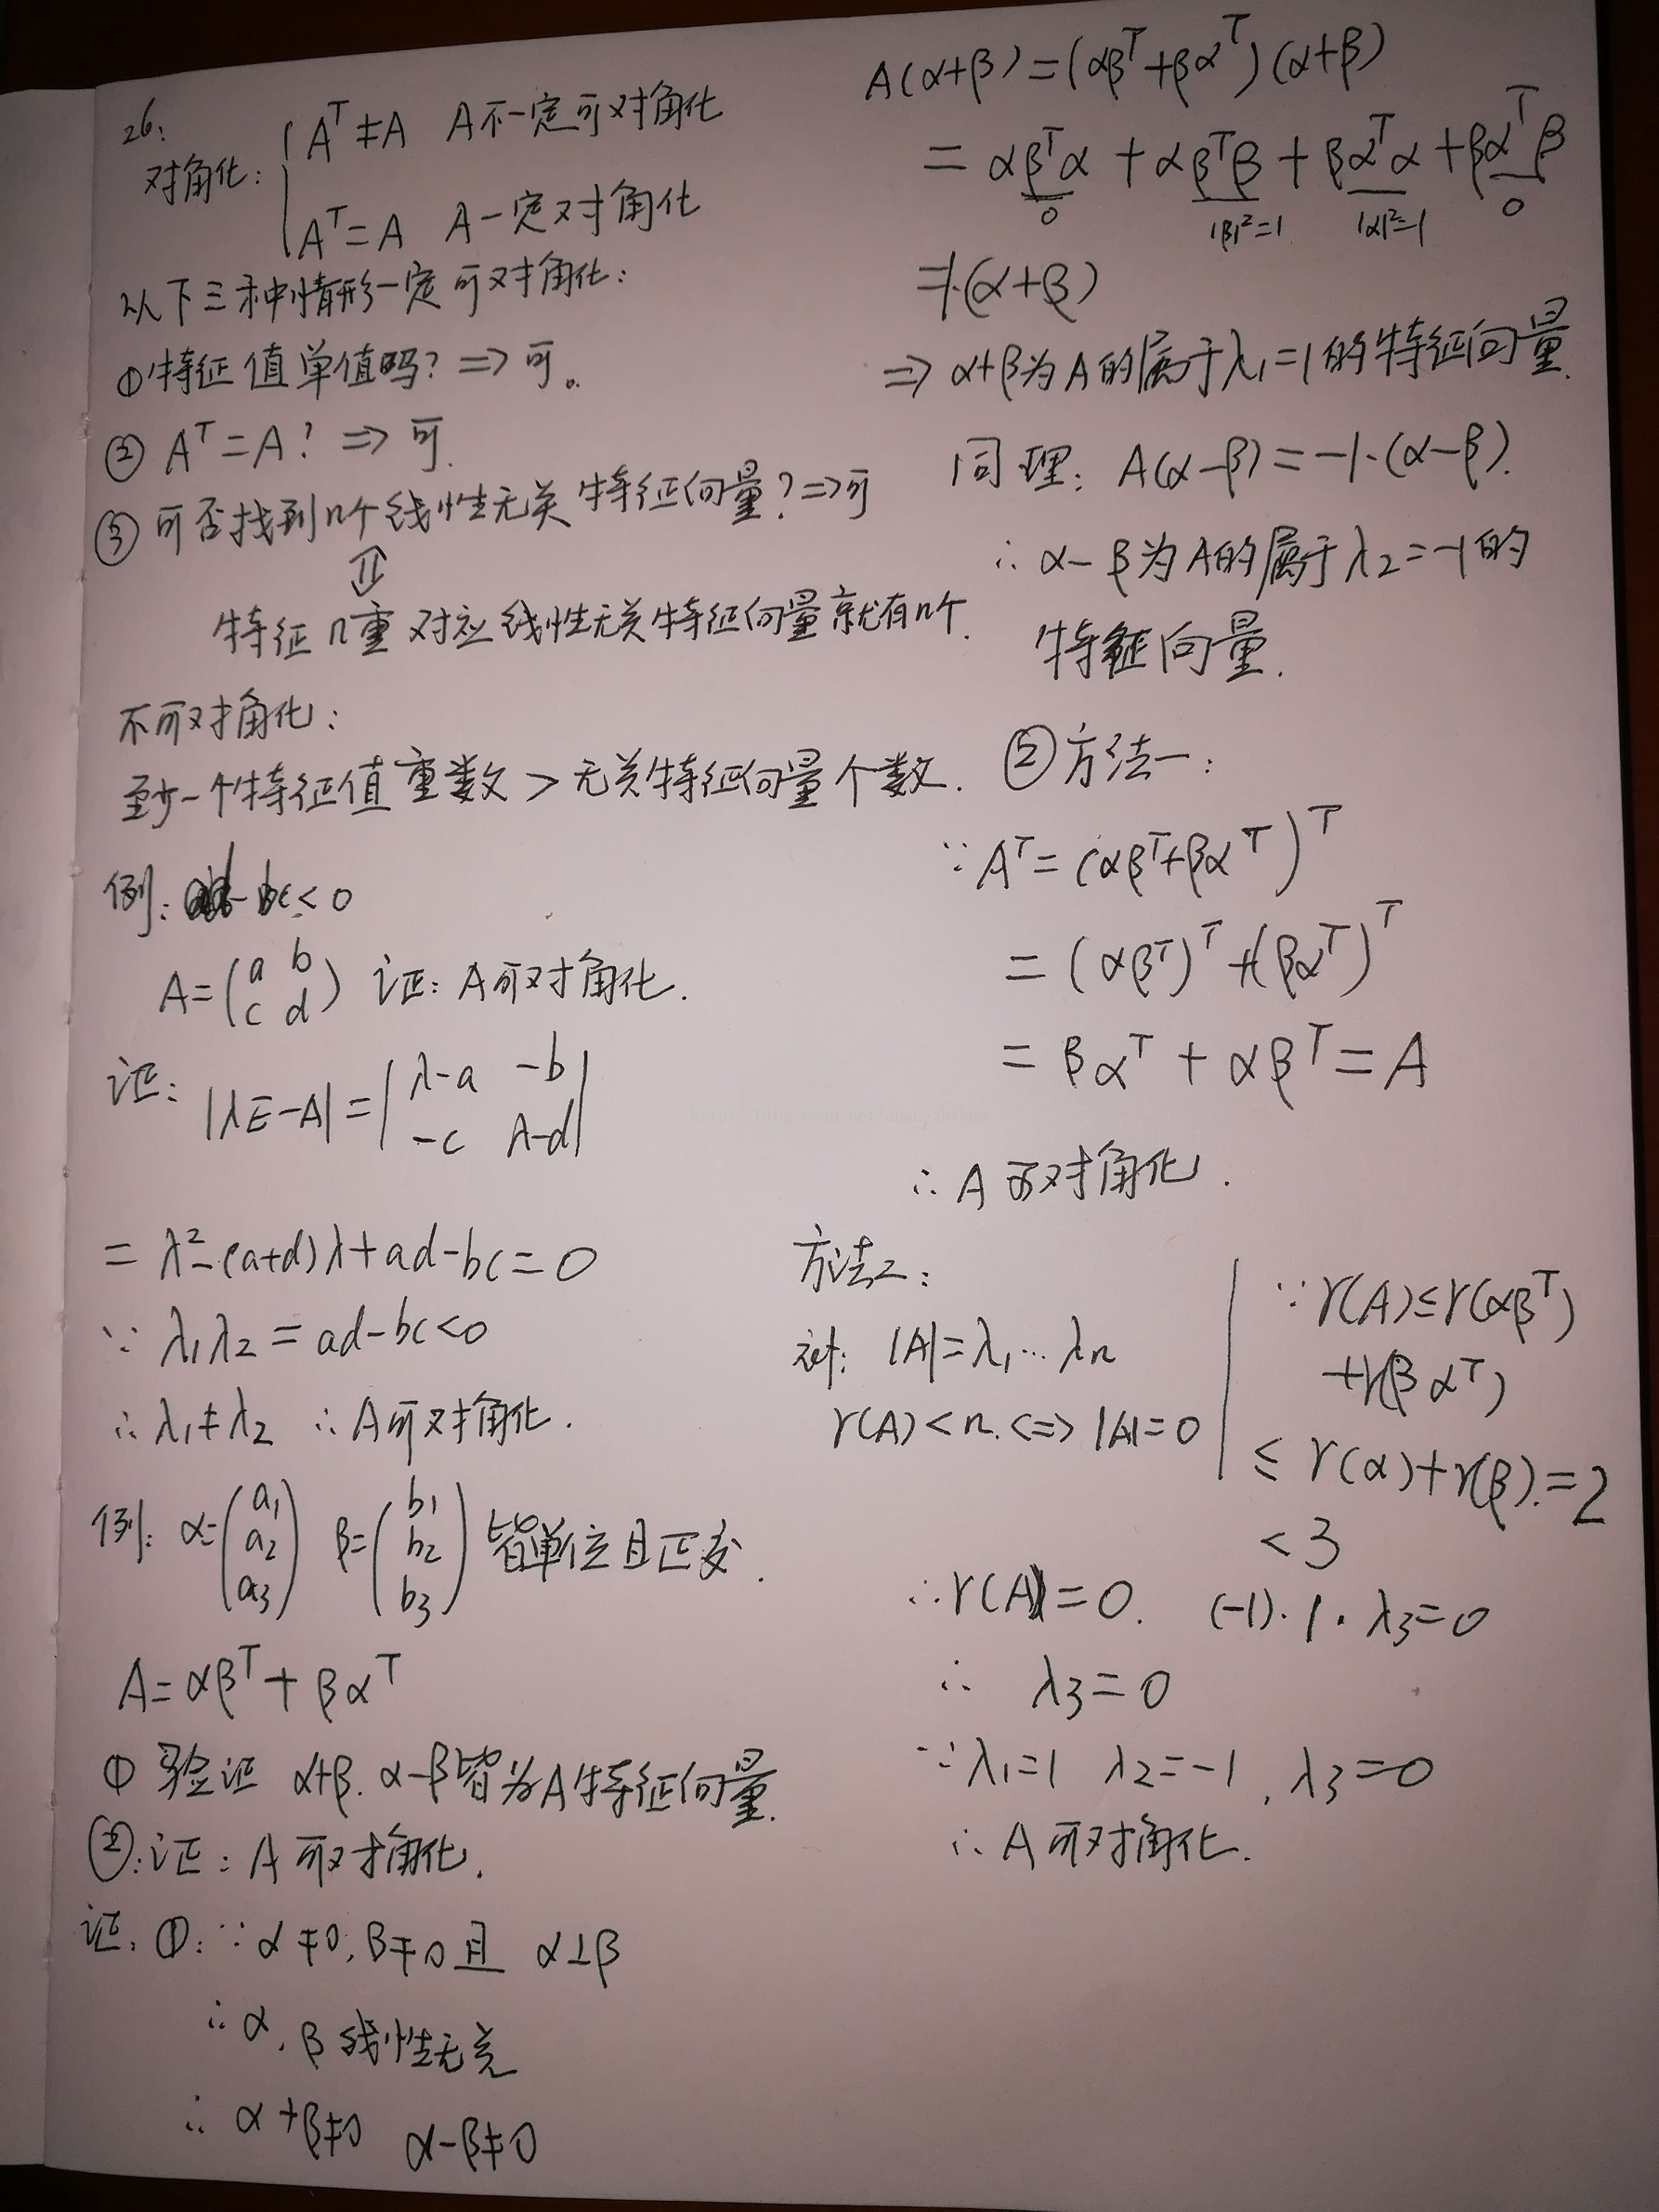 26:
对角化: { A^T≠A A不一定可对角化
A^T=A A一定对角化
以下三种情形一定可对角化:
① 特征值单值吗? => 可。
② A^T=A? => 可.
③ 可否找到n个线性无关特征向量? => 可
⇕
特征n重对应线性无关特征向量就有n个.
不可对角化:
至少一个特征值重数 > 无关特征向量个数.
例: ad-bc<0
A=(a b
c d) 证: A可对角化.
证: |λE-A|=|λ-a -b
-c λ-d|
= λ²-(a+d)λ+ad-bc=0
∵ λ1λ2=ad-bc<0
∴ λ1≠λ2 ∴ A可对角化.
例: α=(a1 a2 a3) β=(b1 b2 b3) 皆单位且正交.
A=αβ^T+βα^T
① 验证 α+β. α-β皆为A特征向量.
②: 证: A可对角化.
证: ①: ∵ α≠0, β≠0 且 α⊥β
∴ α, β 线性无关
∴ α+β≠0 α-β≠0
A(α+β)=(αβ^T+βα^T)(α+β)
= αβ^Tα + αβ^Tβ + βα^Tα + βα^Tβ
0 |β|²=1 |α|²=1 0
=1·(α+β)
=> α+β为A的属于λ1=1的特征向量.
同理: A(α-β)=-1·(α-β).
∴ α-β为A的属于λ2=-1的
特征向量.
② 方法一:
∵ A^T=(αβ^T+βα^T)^T
= (αβ^T)^T+(βα^T)^T
= βα^T + αβ^T = A
∴ A可对角化.
方法二:
|A|=λ1…λn
r(A)<n. <=> |A|=0
∵ r(A)≤r(αβ^T)
+r(βα^T)
≤ r(α)+r(β).=2
<3
∴ r(A)=0. (-1)·1·λ3=0
∴ λ3=0
∵ λ1=1 λ2=-1, λ3=0
∴ A可对角化.